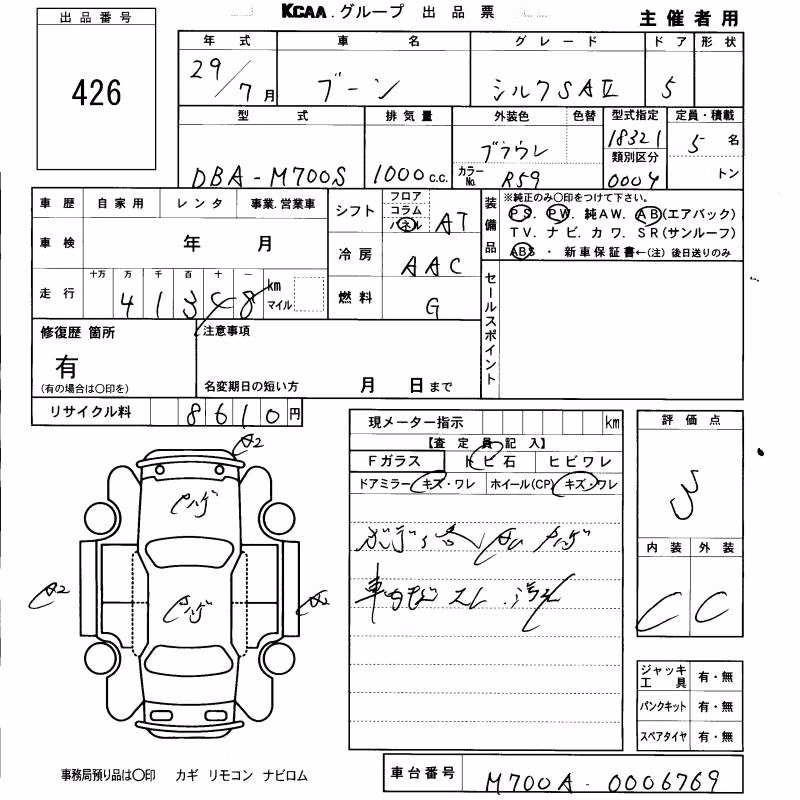 KCAA.グループ 出品票
主催者用
出品番号
426
年式 車名 グレード ドア 形状
29/7月 ブーン シルクSAⅡ 5
型式 排気量 外装色 色替 型式指定 定員・積載
DBA-M700S 1000c.c. ブラウン 18321 5名
カラーNo. R59 類別区分 0004 トン
車歴 自家用 レンタ 事業.営業車
車検 年 月
走行 十万 万 千 百 十 一
41348 km マイル
シフト フロア コラム パネル AT
冷房 AAC
燃料 G
装備品
※純正のみ〇印をつけて下さい。
PS. PW. 純AW. AB(エアバック)
TV. ナビ. カワ. SR(サンルーフ)
ABS ・ 新車保証書←(注) 後日送りのみ
セールスポイント
修復歴 箇所
有
(有の場合は〇印を)
注意事項
名変期日の短い方 月 日まで
リサイクル料 8610円
現メーター指示 km
【査定員記入】
Fガラス トビ石 ヒビワレ
ドアミラー キズ・ワレ ホイール(CP) キズ・ワレ
評価点
3
内装 外装
C C
A2
A2
ジャッキ工具 有・無
パンクキット 有・無
スペアタイヤ 有・無
事務局預り品は〇印 カギ リモコン ナビロム
車台番号 M700A-0006769